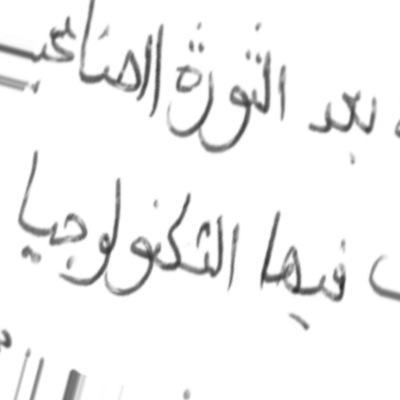 بعد الثورة الصناعية
فيها التكنولوجيا